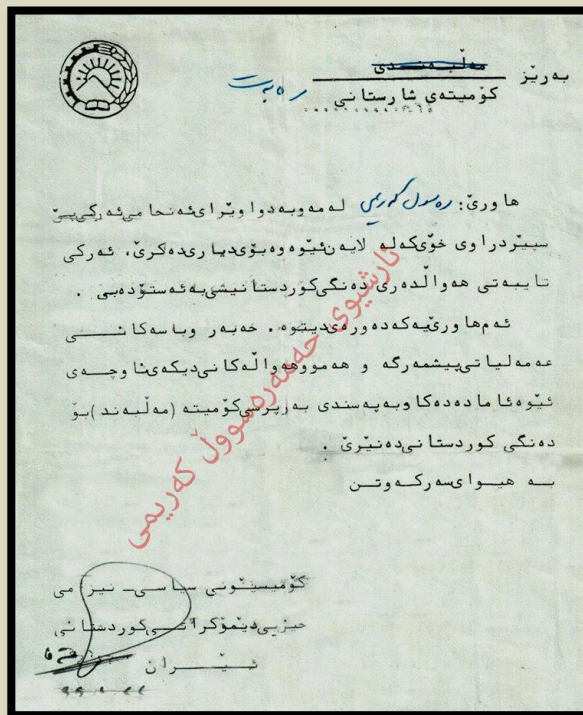 بەرێز
مەڵبەندی
کۆمیتەی شارستانی
هاورێ: رەسول کەریمی لەمەوبەدوا وێرای ئەنجامی ئەرکی پێ
سپێردراوی خۆی کە لە لایەن ئێوەوە بۆی دیاری دەکرێ، ئەرکی
تایبەتی هەواڵدەری دەنگی کوردستانیشی بە ئەستۆ دەبی .
ئەم هاورێیە کە دەورەی دیتوە، خەبەر و باسەکانی
عەمەلیاتی پیشمەرگە و هەموو هەواڵەکانی دیکەی ناوچەی
ئێوە ئامادە دەکا و بە پەسندی بەرپرسی کۆمیتە (مەڵبەند) بۆ
دەنگی کوردستانی دەنێرێ .
بە هیوای سەرکەوتن
ئارشیوی حەمەرەسووڵ کەریمی
کۆمیسێونی سیاسی ـ نیزامی
حیزبی دێمۆکراتی کوردستانی
ئێران